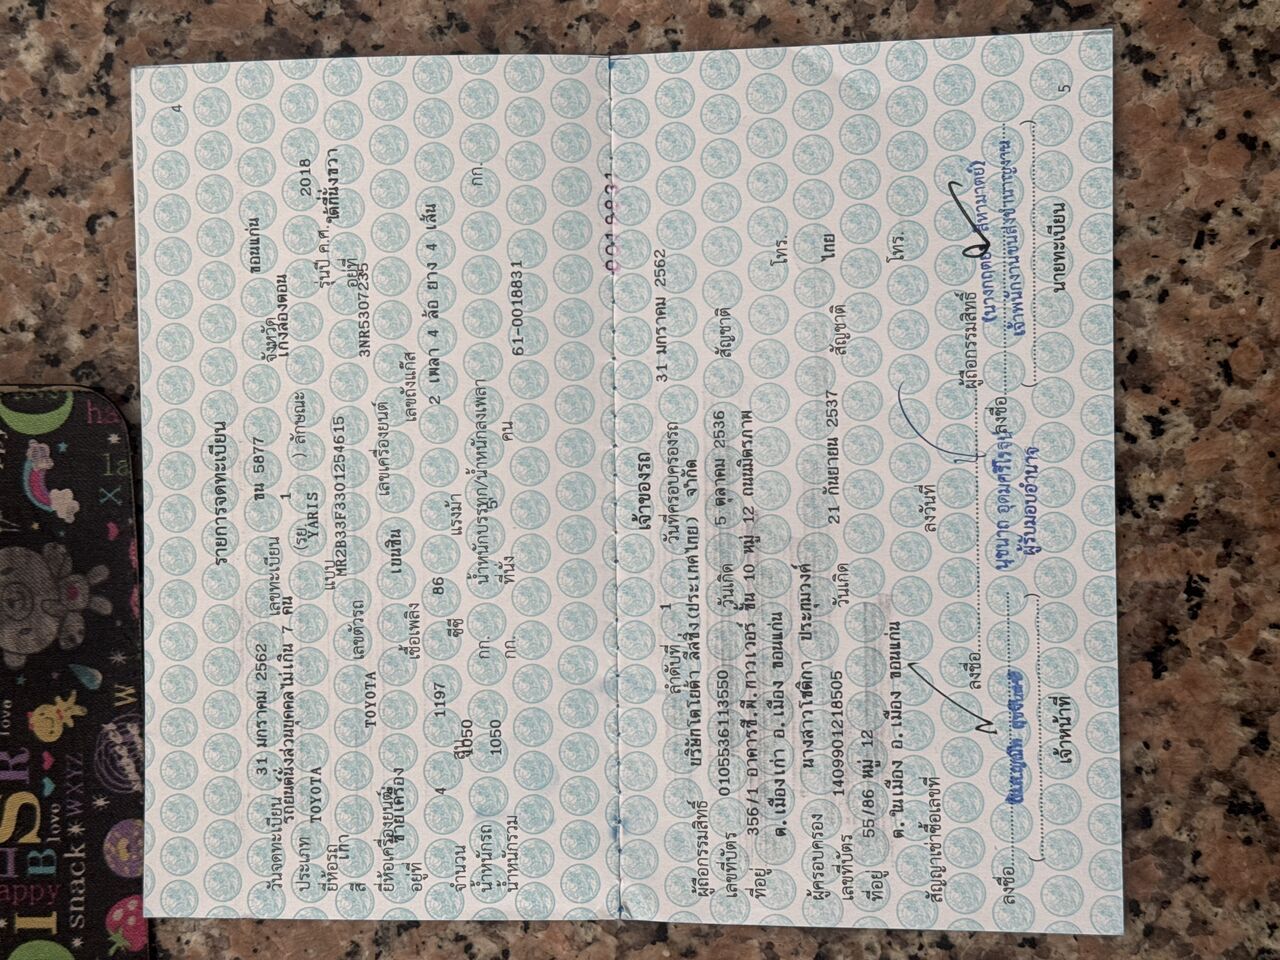 4
รายการจดทะเบียน
วันจดทะเบียน 31 มกราคม 2562 เลขทะเบียน ขน 5877 จังหวัด ขอนแก่น
ประเภท รถยนต์นั่งส่วนบุคคลไม่เกิน 7 คน (รย. 1 ) ลักษณะ เก๋งสองตอน
ยี่ห้อรถ TOYOTA แบบ YARIS รุ่นปี ค.ศ. 2018
สี เทา เลขตัวรถ MR2B33F3301254615 อยู่ที่ ใต้ที่นั่งขวา
ยี่ห้อเครื่องยนต์ TOYOTA เลขเครื่องยนต์ 3NR5307235
อยู่ที่ ซ้ายเครื่อง เชื้อเพลิง เบนซิน เลขถังแก๊ส
จำนวน 4 สูบ 1197 ซีซี 86 แรงม้า 2 เพลา 4 ล้อ ยาง 4 เส้น
น้ำหนักรถ 1050 กก. น้ำหนักบรรทุก/น้ำหนักลงเพลา กก.
น้ำหนักรวม 1050 กก. ที่นั่ง 5 คน 61-0018831
0018831
เจ้าของรถ
ลำดับที่ 1 วันที่ครอบครองรถ 31 มกราคม 2562
ผู้ถือกรรมสิทธิ์ บริษัทโตโยต้า ลีสซิ่ง(ประเทศไทย) จำกัด
เลขที่บัตร 0105536113550 วันเกิด 5 ตุลาคม 2536 สัญชาติ
ที่อยู่ 356/1 อาคารซี.พี.ทาวเวอร์ ชั้น 10 หมู่ 12 ถนนมิตรภาพ
ต.เมืองเก่า อ.เมือง ขอนแก่น โทร.
ผู้ครอบครอง นางสาวโชติกา ประทุมวงศ์
เลขที่บัตร 1409901218505 วันเกิด 21 กันยายน 2537 สัญชาติ ไทย
ที่อยู่ 55/86 หมู่ 12
ต.ในเมือง อ.เมือง ขอนแก่น โทร.
สัญญาเช่าซื้อเลขที่ ลงวันที่
ลงชื่อ ผู้ถือกรรมสิทธิ์
ผู้รับมอบอำนาจ
ลงชื่อ ลงชื่อ
เจ้าพนักงานขนส่งชำนาญงาน
เจ้าหน้าที่ นายทะเบียน
5